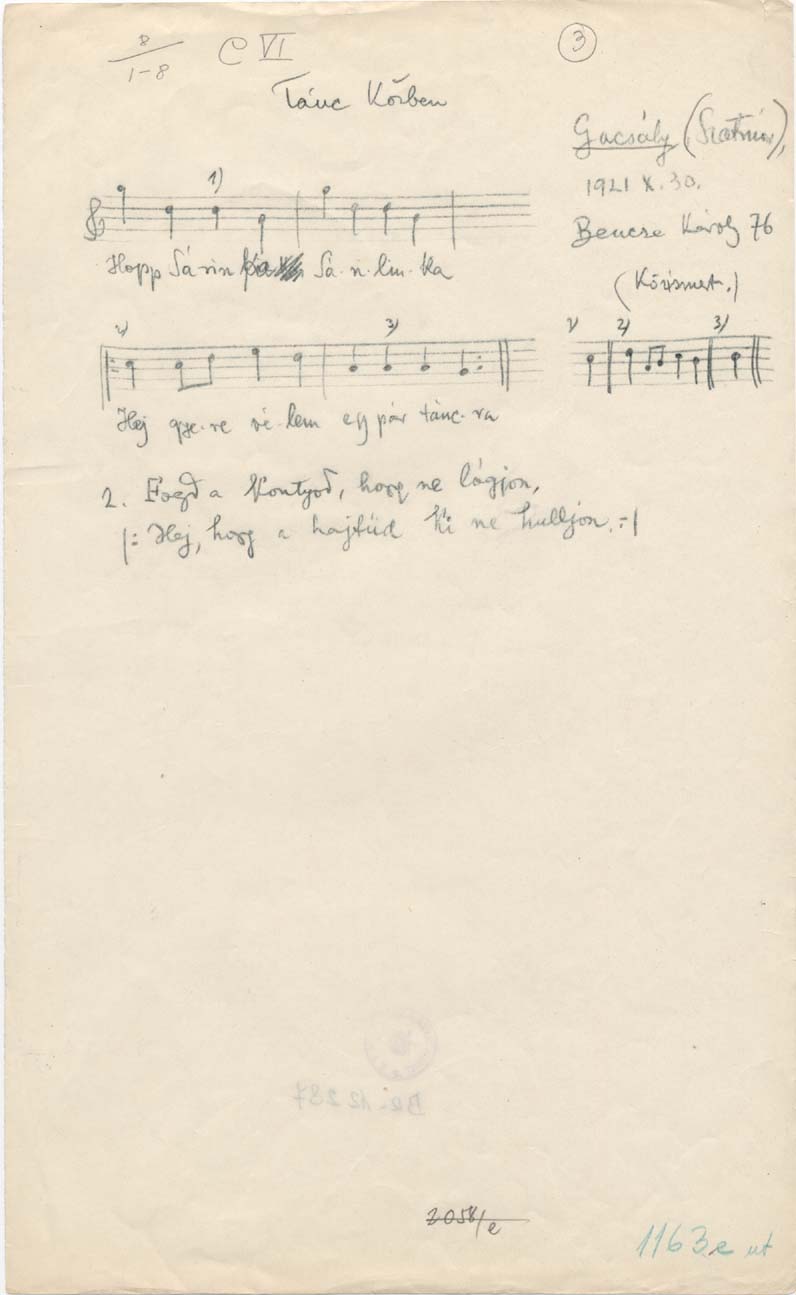 8
1-8
C VI
3
Tánc Körben
Gacsály (Szatmár),
1921 X. 30.
Bencze Károly 76
(Közismert.)
1)
Hopp Sá-rin Sá-ri-lin-ka
2) 3)
1) 2) 3)
Hej gye-re vé-lem egy pár tánc-ra
2. Fogd a kontyod, hogy ne lógjon,
|: Hej, hogy a hajtűd ki ne hulljon. :|
BR. 12 287
2058/e
1163e ut